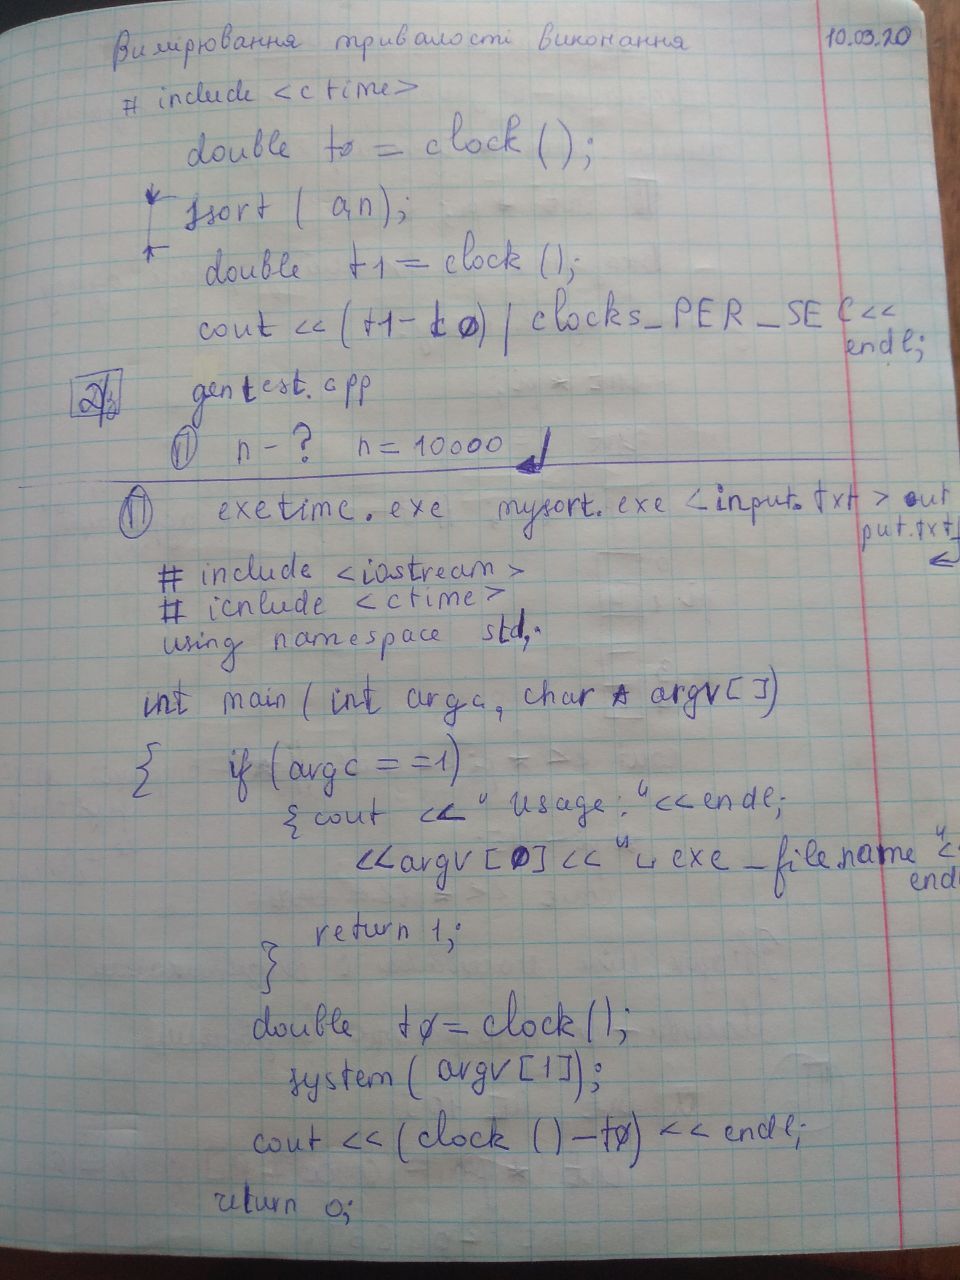 Вимірювання тривалості виконання 10.03.20
# include <ctime>
double t0 = clock ();
sort ( a,n);
double t1 = clock ();
cout << (t1 - t0) / clocks_PER_SEC <<
endl;
Д/з gentest.cpp
П n - ? n = 10000
П exetime.exe mysort.exe <input.txt > out
put.txt
# include <iostream>
# icnlude <ctime>
using namespace std;
int main ( int argc, char * argv[])
{ if (argc = =1)
{ cout << " Usage: " << endl;
<< argv [0] << " ⌴ exe _ filename " <
endl
return 1;
}
double t0 = clock ();
system ( argv [1]);
cout << (clock () - t0) << endl;
return 0;